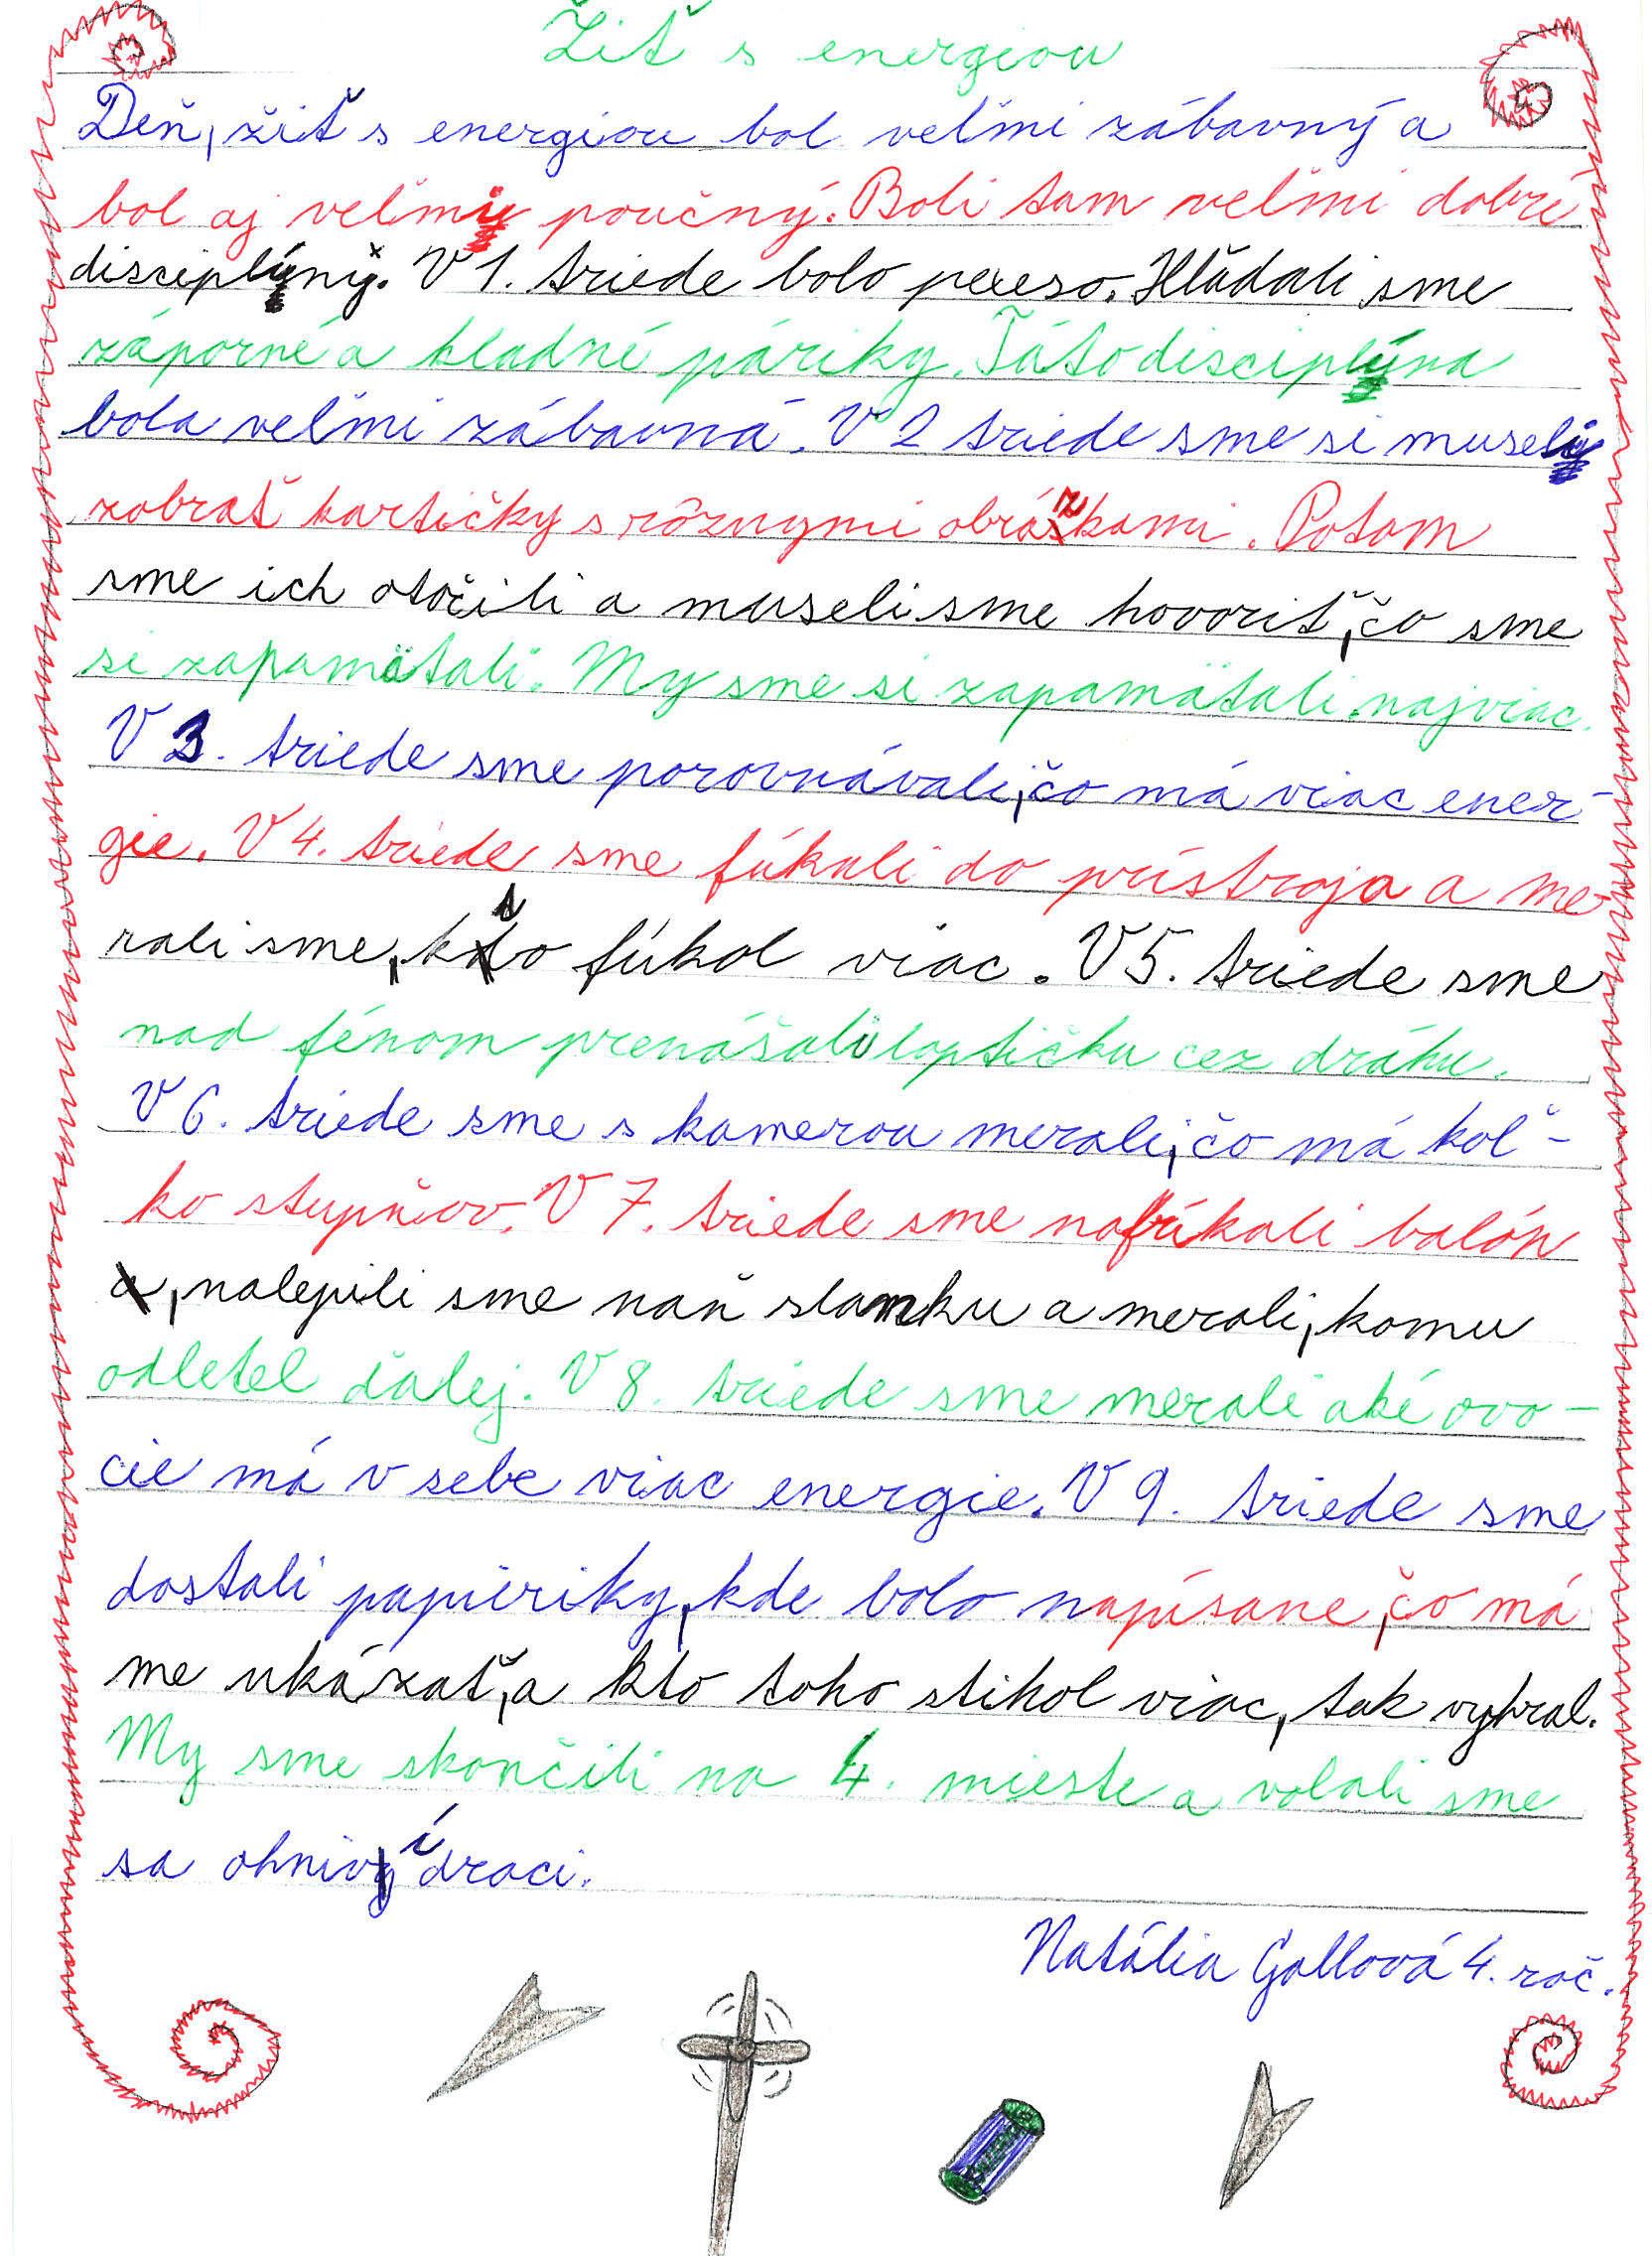 Žiť s energiou
Deň, žiť s energiou bol veľmi zábavný a
bol aj veľmi poučný. Boli tam veľmi dobré
disciplíny. V 1. triede bolo pexeso. Hľadali sme
záporné a kladné páriky. Táto disciplína
bola veľmi zábavná. V 2 triede sme si museli
zobrať kartičky s rôznymi obrázkami. Potom
sme ich otočili a museli sme hovoriť, čo sme
si zapamätali. My sme si zapamätali najviac.
V 3. triede sme porovnávali, čo má viac ener-
gie. V 4. triede sme fúkali do prístroja a me-
rali sme, kto fúkol viac. V 5. triede sme
nad fénom prenášali loptičku cez dráhu.
V 6. triede sme s kamerou merali, čo má koľ-
ko stupňov. V 7. triede sme nafúkali balón
, nalepili sme naň slamku a merali, komu
odletel ďalej. V 8. triede sme merali aké ovo-
cie má v sebe viac energie. V 9. triede sme
dostali papieriky, kde bolo napísane, čo má
me ukázať, a kto toho stihol viac, tak vyhral.
My sme skončili na 4. mieste a volali sme
sa ohniví draci.
Natália Gallová 4. roč.